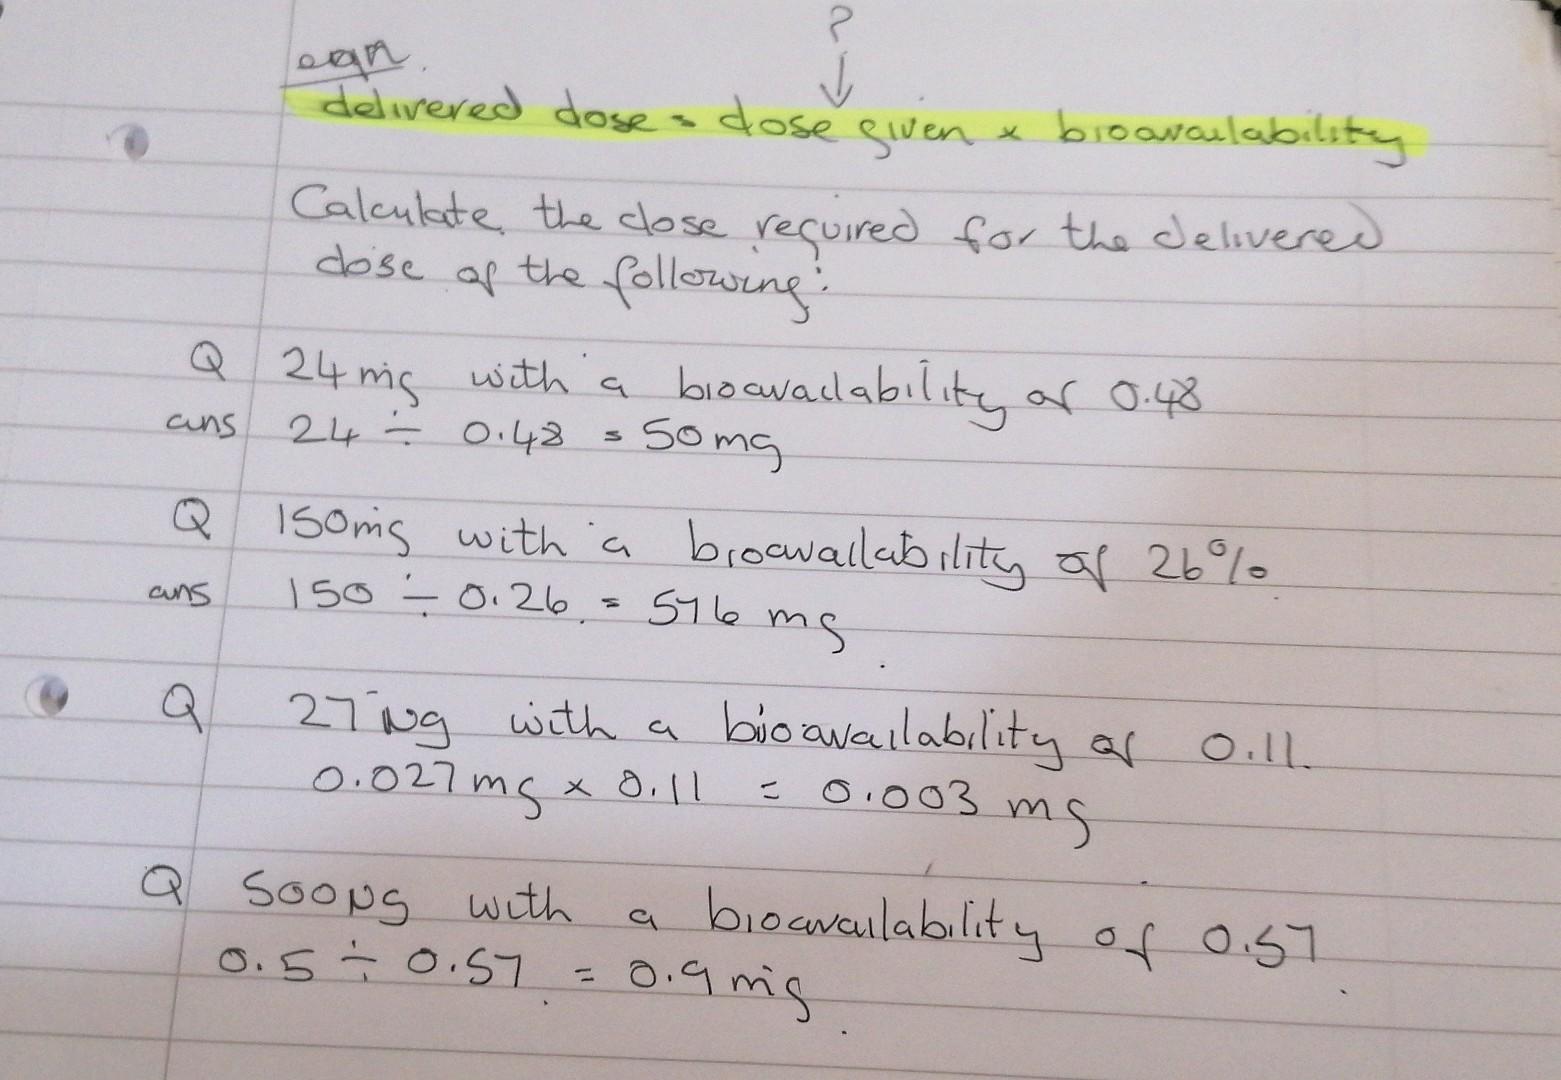 ?
eqn.
delivered dose = dose given x bioavailability
Calculate the dose required for the delivered
dose of the following:
Q 24mg with a bioavailability of 0.48
ans 24 ÷ 0.48 = 50mg
Q 150mg with a bioavailability of 26%
ans 150 ÷ 0.26 = 576 mg
Q 27µg with a bioavailability of 0.11.
0.027mg x 0.11 = 0.003 mg
Q 500µg with a bioavailability of 0.57
0.5 ÷ 0.57 = 0.9mg